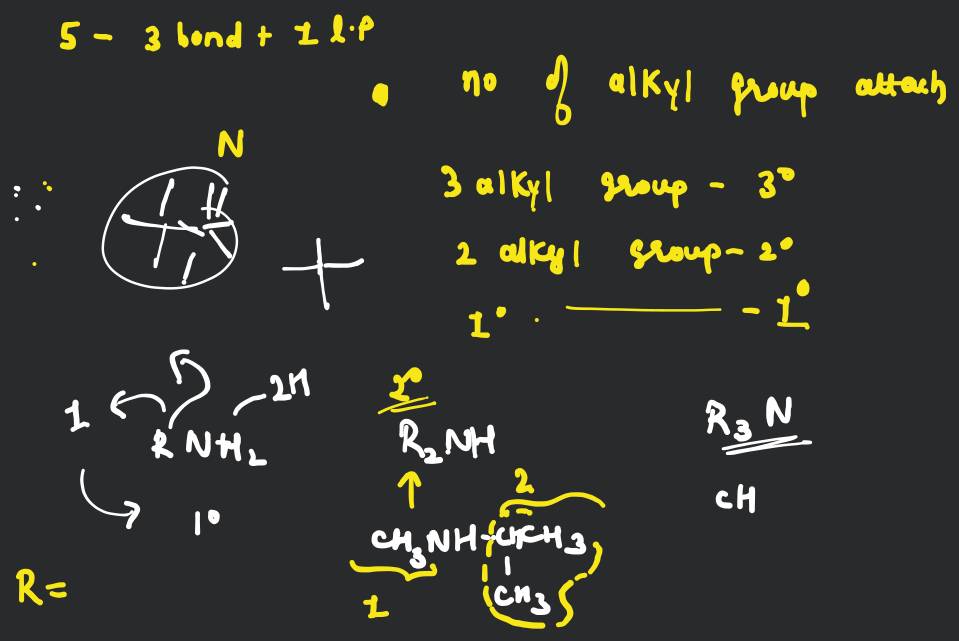 5 - 3 bond + 1 l.p
no of alkyl group attach
N
3 alkyl group - 3°
2 alkyl group - 2°
1° . - 1°
1
RNH2
2H
1°
2°
R2NH
R3N
CH
2
CH3NH-CHCH3
CH3
1
R=